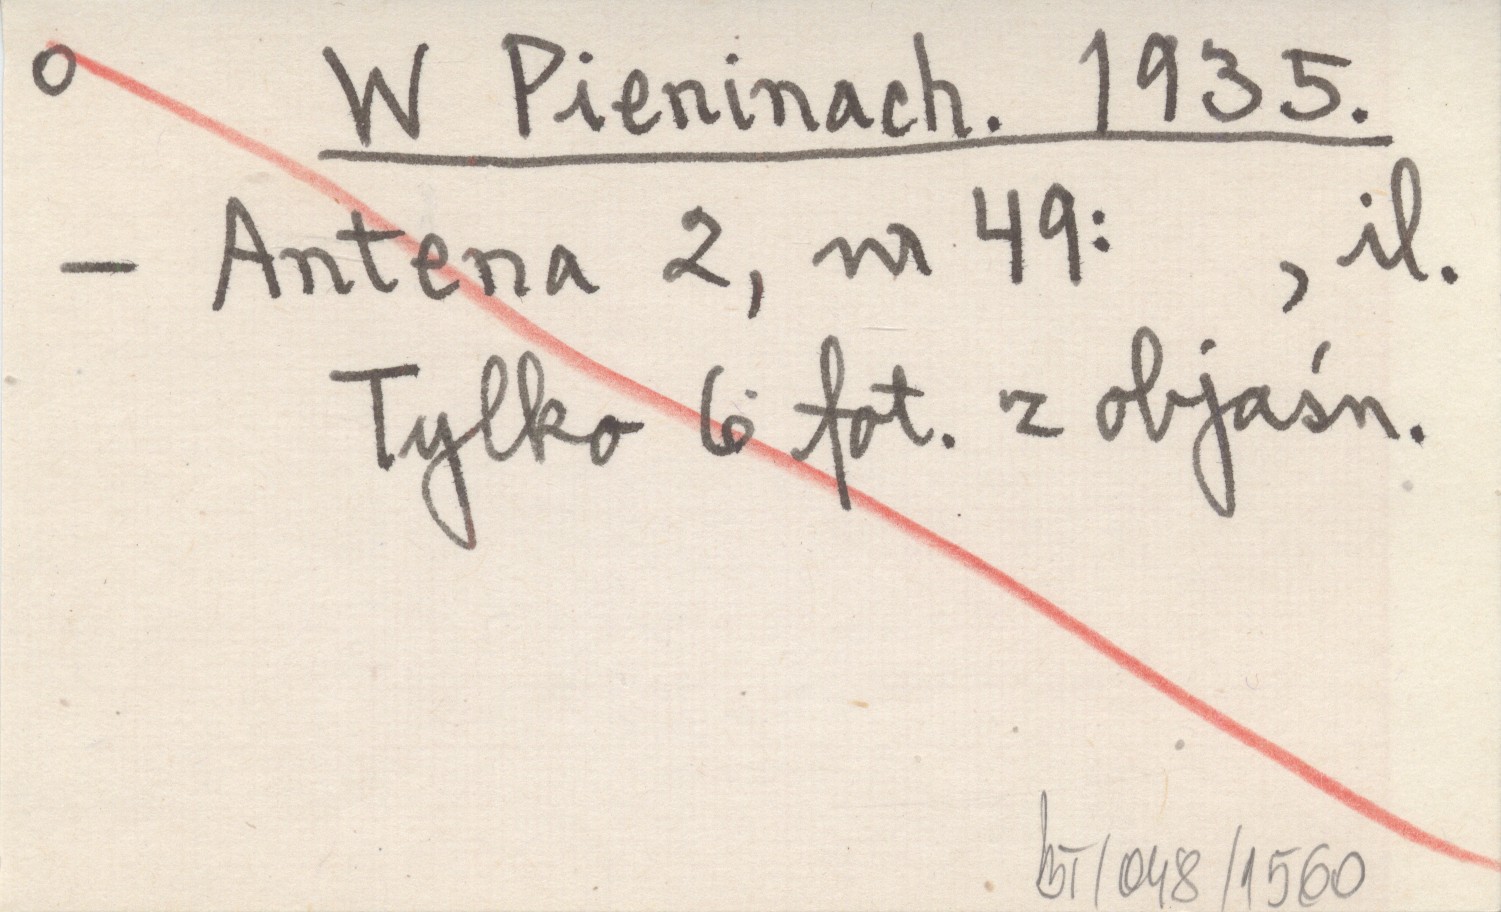 o W Pieninach. 1935.
— Antena 2, nr 49: , il.
Tylko 6 fot. z objaśn.
bT/048/1560